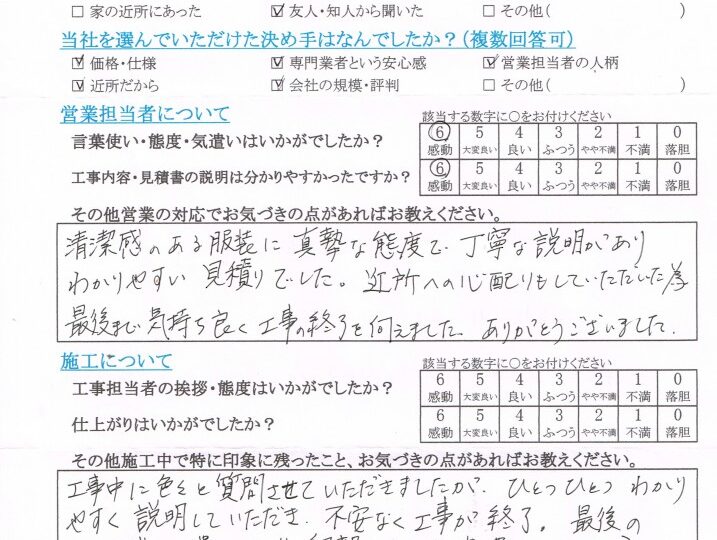 □ 家の近所にあった ☑ 友人・知人から聞いた □ その他( )
当社を選んでいただけた決め手はなんでしたか？(複数回答可)
☑ 価格・仕様 ☑ 専門業者という安心感 ☑ 営業担当者の人柄
☑ 近所だから ☑ 会社の規模・評判 □ その他( )
営業担当者について 該当する数字に○をお付けください
言葉使い・態度・気遣いはいかがでしたか？ 6 5 4 3 2 1 0
感動 大変良い 良い ふつう やや不満 不満 落胆
工事内容・見積書の説明は分かりやすかったですか？ 6 5 4 3 2 1 0
感動 大変良い 良い ふつう やや不満 不満 落胆
その他営業の対応でお気づきの点があればお教えください。
清潔感のある服装に真摯な態度で丁寧な説明があり
わかりやすい見積りでした。近所への心配りもしていただいた為
最後まで気持ち良く工事の終了を伺えました。ありがとうございました.
施工について 該当する数字に○をお付けください
工事担当者の挨拶・態度はいかがでしたか？ 6 5 4 3 2 1 0
感動 大変良い 良い ふつう やや不満 不満 落胆
仕上がりはいかがでしたか？ 6 5 4 3 2 1 0
感動 大変良い 良い ふつう やや不満 不満 落胆
その他施工中で特に印象に残ったこと、お気づきの点があればお教えください。
工事中に色々と質問させていただきましたが、ひとつひとつ わかり
やすく説明していただき、不安なく工事が終了。最後の